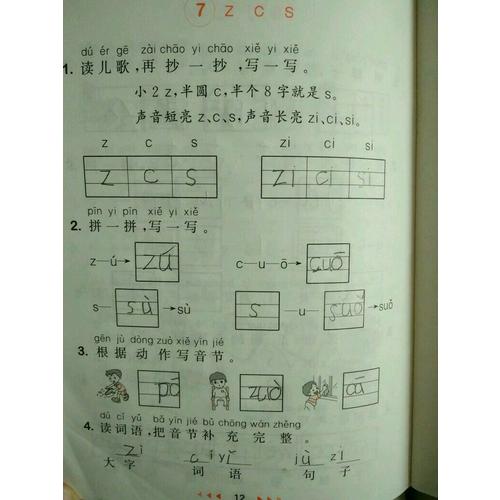 7 z c s
dú ér gē zài chāo yi chāo xiě yi xiě
1. 读儿歌,再抄一抄,写一写。
小2 z,半圆c,半个8字就是s。
声音短亮z、c、s,声音长亮zi、ci、si。
z c s zi ci si
z c s zi ci si
pīn yi pīn xiě yi xiě
2. 拼一拼,写一写。
z—ú→ zú c—u—ō→ cuō
s— sù →sù s —u— suǒ →suǒ
gēn jù dòng zuò xiě yīn jié
3. 根据动作写音节。
pá zuò cā
dú cí yǔ bǎ yīn jié bǔ chōng wán zhěng
4. 读词语,把音节补充完整。
zì cí yǔ jù zi
大字 词语 句子
12